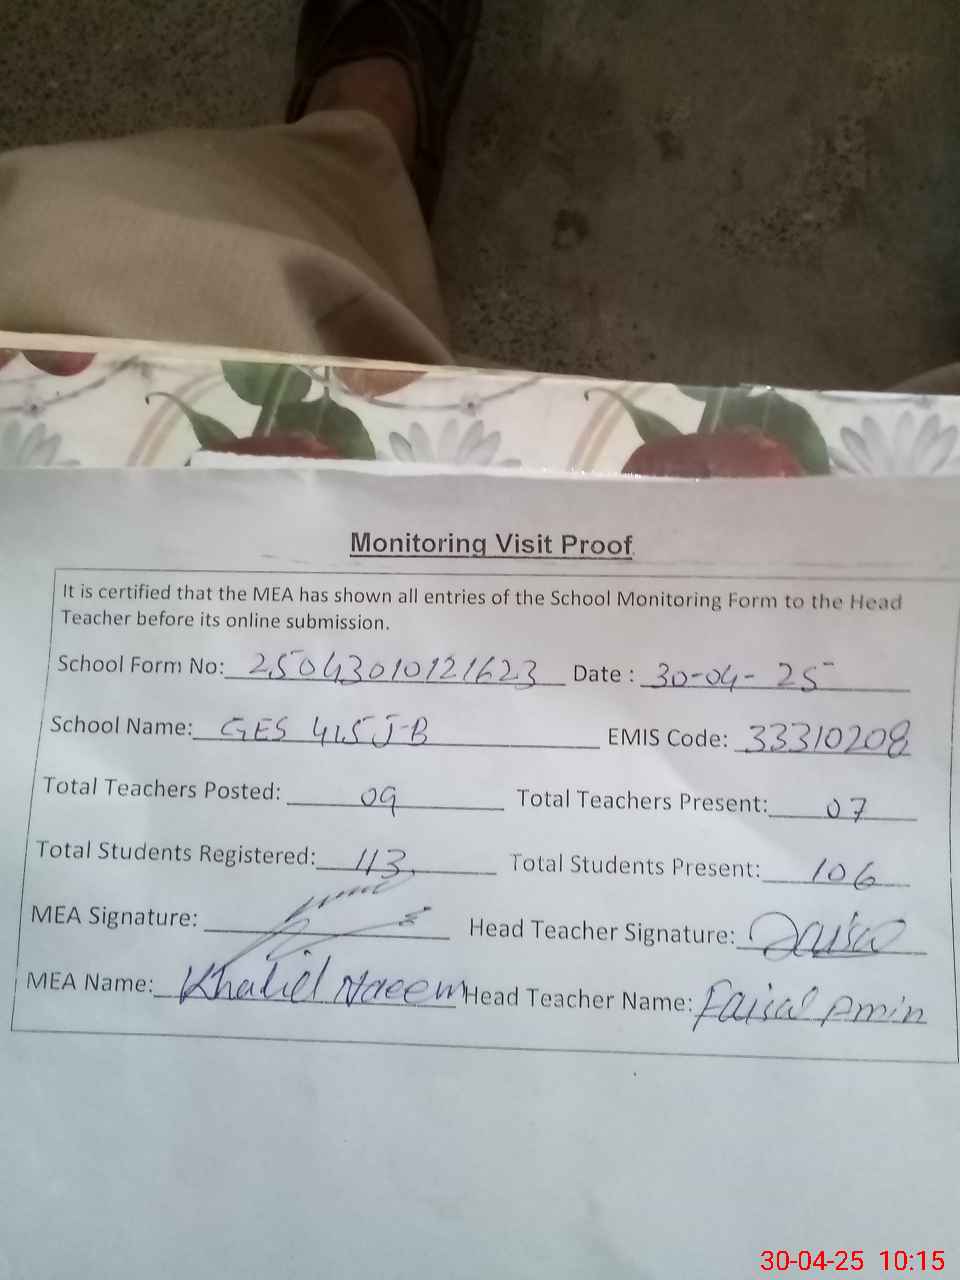 Monitoring Visit Proof
It is certified that the MEA has shown all entries of the School Monitoring Form to the Head
Teacher before its online submission.
School Form No: 25043010121623 Date : 30-04-25
School Name: GES 415 J-B EMIS Code: 33310208
Total Teachers Posted: 09 Total Teachers Present: 07
Total Students Registered: 113 Total Students Present: 106
MEA Signature: Head Teacher Signature: Faisal
MEA Name: Khalid Naeem Head Teacher Name: Faisal Amin
30-04-25 10:15